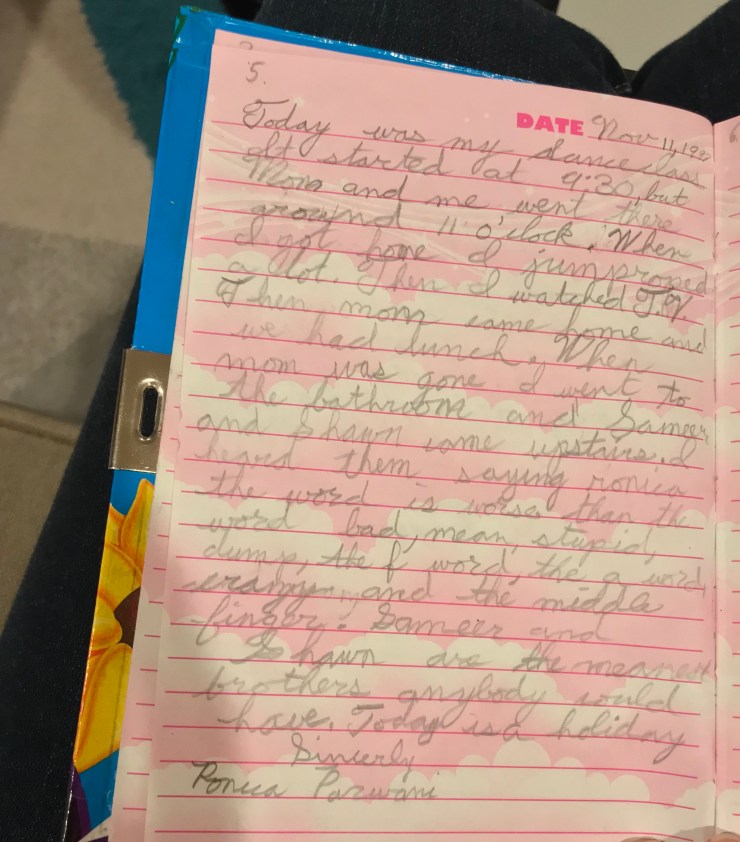 5.
DATE Nov 11, 199
Today was my dance class
It started at 9:30, but
Mom and me went there
around 11 o'clock. When
I got home I jumproped
a lot. Then I watched T.V.
Then mom came home and
we had lunch. When
mom was gone I went to
the bathroom and Sameer
and Shawn came upstairs. I
heard them saying ronica
the word is worse than th
word bad, mean, stupid,
dump, the f word, the a word,
crazy, and the middle
finger. Sameer and
Shawn are the meanest
brothers anybody could
have. Today is a holiday
Sincerly
Ronica Parwani
6.